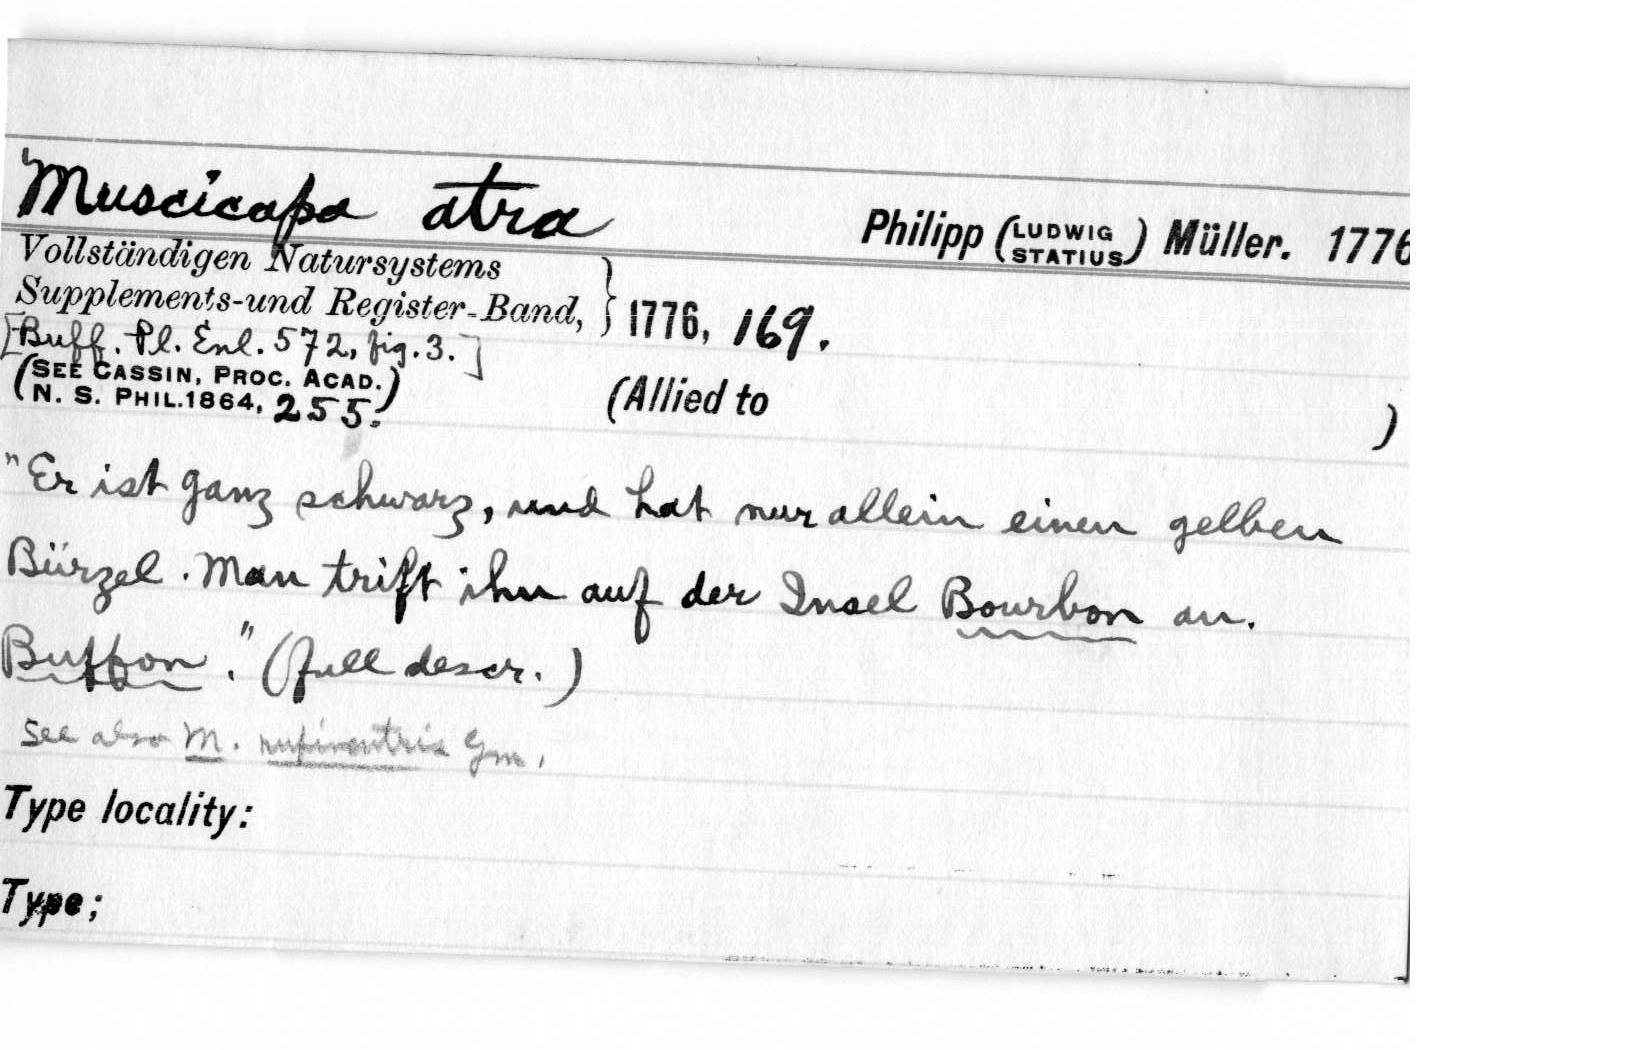 Muscicapa atra
Philipp (LUDWIG STATIUS) Müller. 1776
Vollständigen Natursystems
Supplements-und Register-Band, } 1776, 169.
[Buff. Pl. Enl. 572, fig. 3.]
(SEE CASSIN, PROC. ACAD.
N. S. PHIL. 1864, 255.)
(Allied to )
"Er ist ganz schwarz, und hat nur allein einen gelben
Bürzel. Man trift ihn auf der Insel Bourbon an.
Buffon." (full descr.)
See also M. rufiventris Gm.
Type locality:
Type;